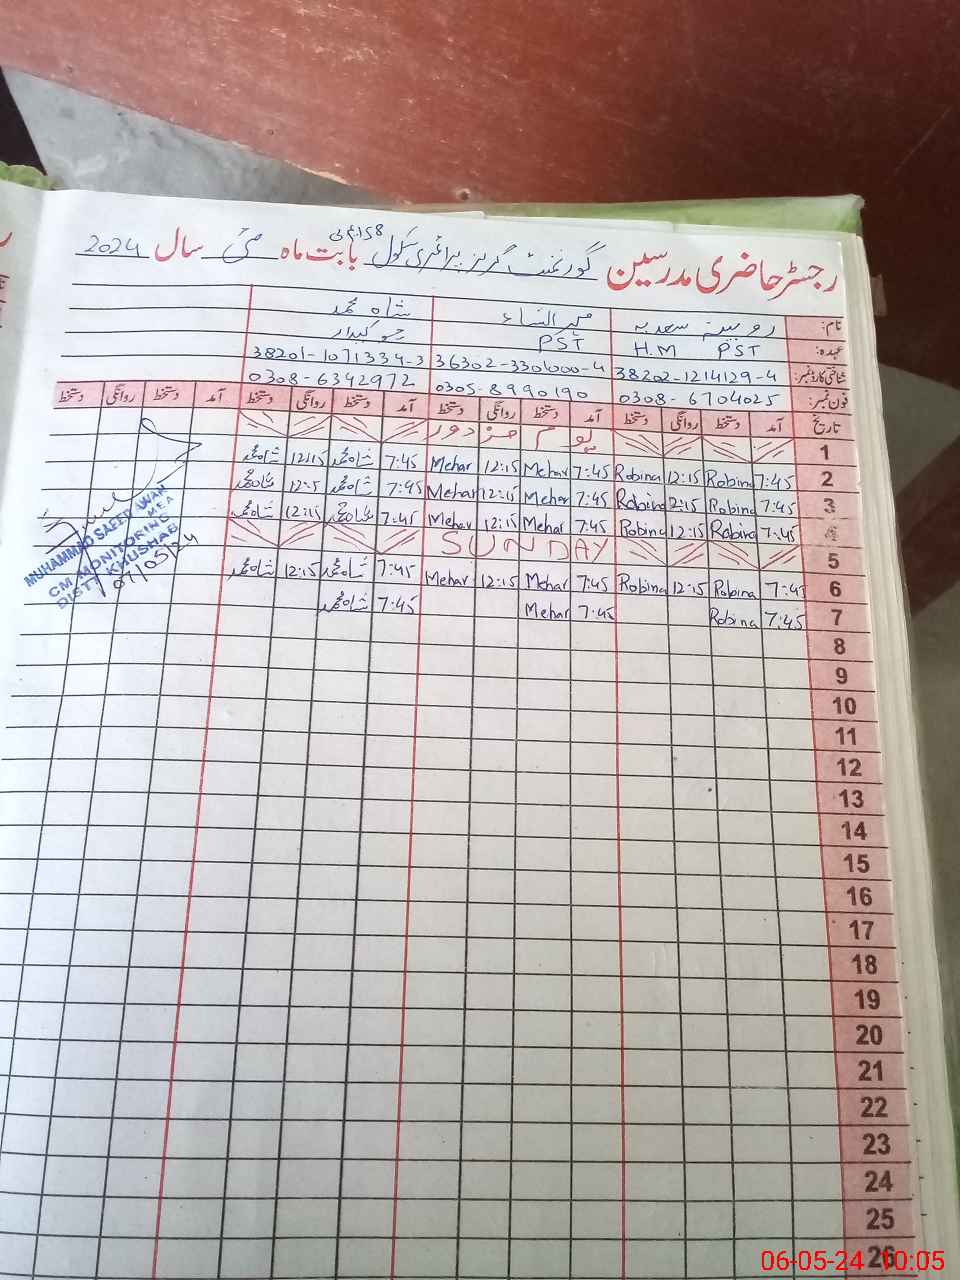 رجسٹر حاضری مدرسین گورنمنٹ گرلز پرائمری سکول 158 بابت ماہ مئی سال 2024
نام: روبینہ سعدیہ مہر النساء شاہ محمد
عہدہ: H.M PST PST چوکیدار
شناختی کارڈ نمبر: 38202-1214129-4 36302-3301000-4 38201-1071334-3
فون نمبر: 0308-6704025 0305-8990190 0308-6342972
تاریخ آمد دستخط روانگی دستخط آمد دستخط روانگی دستخط آمد دستخط روانگی دستخط آمد دستخط روانگی دستخط
1 یوم مزدور
2 7:45 Robina 12:15 Robina 7:45 Mehar 12:15 Mehar 7:45 شاہ محمد 12:15 شاہ محمد
3 7:45 Robina 12:15 Robina 7:45 Mehar 12:15 Mehar 7:45 شاہ محمد 12:15 شاہ محمد
4 7:45 Robina 12:15 Robina 7:45 Mehar 12:15 Mehar 7:45 شاہ محمد 12:15 شاہ محمد
5 SUNDAY
6 7:45 Robina 12:15 Robina 7:45 Mehar 12:15 Mehar 7:45 شاہ محمد 12:15 شاہ محمد
7 7:45 Robina 7:45 Mehar 7:45 شاہ محمد
8
9
10
11
12
13
14
15
16
17
18
19
20
21
22
23
24
25
26
MUHAMMAD SAEED AWAN
MEA
CM MONITORING
DISTT KHUSHAB
07/05/24
06-05-24 10:05